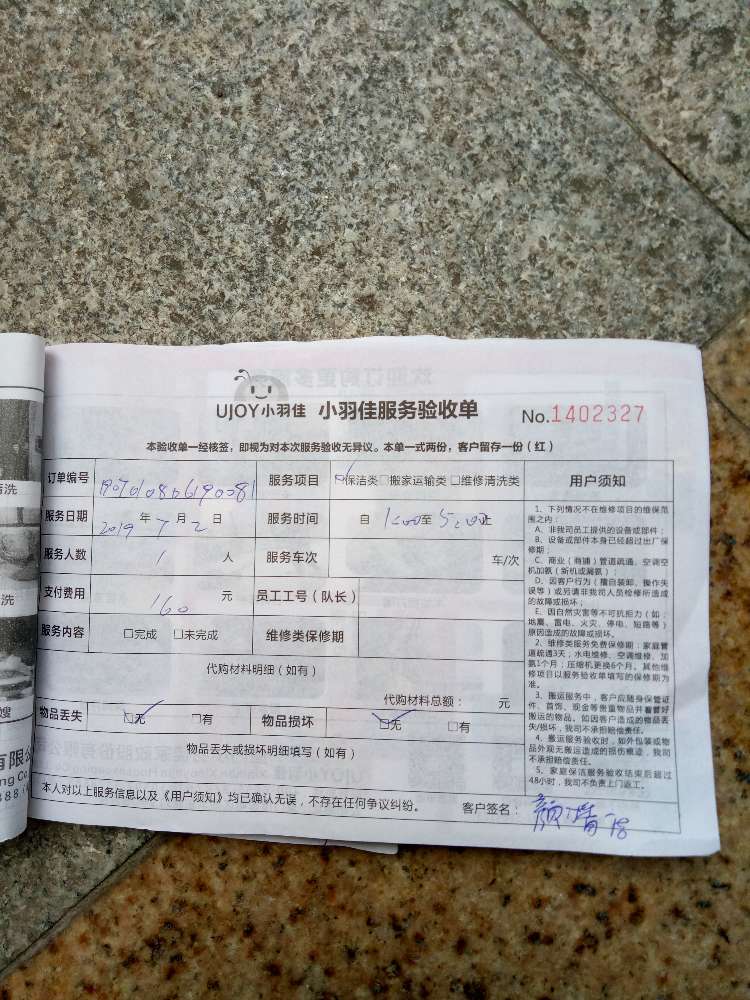 UJOY小羽佳 小羽佳服务验收单 No.1402327
本验收单一经核签，即视为对本次服务验收无异议。本单一式两份，客户留存一份（红）
订单编号 服务项目 保洁类 □搬家运输类 □维修清洗类 用户须知
服务日期 2019年7月2日 服务时间 自1:00至5:00止
服务人数 1 人 服务车次 车/次
支付费用 160 元 员工工号（队长）
服务内容 □完成 □未完成 维修类保修期
代购材料明细（如有）
代购材料总额： 元
物品丢失 □无 □有 物品损坏 □无 □有
物品丢失或损坏明细填写（如有）
本人对以上服务信息以及《用户须知》均已确认无误，不存在任何争议纠纷。 客户签名：
1、下列情况不在维修项目的维保范
围之内：
A、非我司员工提供的设备或部件；
B、设备或部件本身已经超过出厂保
修期；
C、商业（商铺）管道疏通、空调空
机加氨（新机或漏氨）；
D、因客户行为（擅自装卸、操作失
误等）或另请非我司人员检修所造成
的故障或损坏；
E、因自然灾害等不可抗拒力（如：
地震、雷电、火灾、停电、短路等）
原因造成的故障或损坏。
2、维修类服务免费保修期：家庭管
道疏通3天；水电维修、空调维修、加
氨1个月；压缩机更换6个月。其他维
修项目以服务验收单填写的保修期为
准。
3、搬运服务中，客户应随身保管证
件、首饰、现金等贵重物品并看管好
搬运的物品。如因客户造成的物品丢
失/损坏，我司不承担赔偿责任。
4、搬运服务验收时，如外包装或物
品外观无搬运造成的损伤痕迹，我司
不承担赔偿责任。
5、家庭保洁服务验收结束后超过
48小时，我司不负责上门返工。
清洗
洗
嫂
有限公
ng Co.